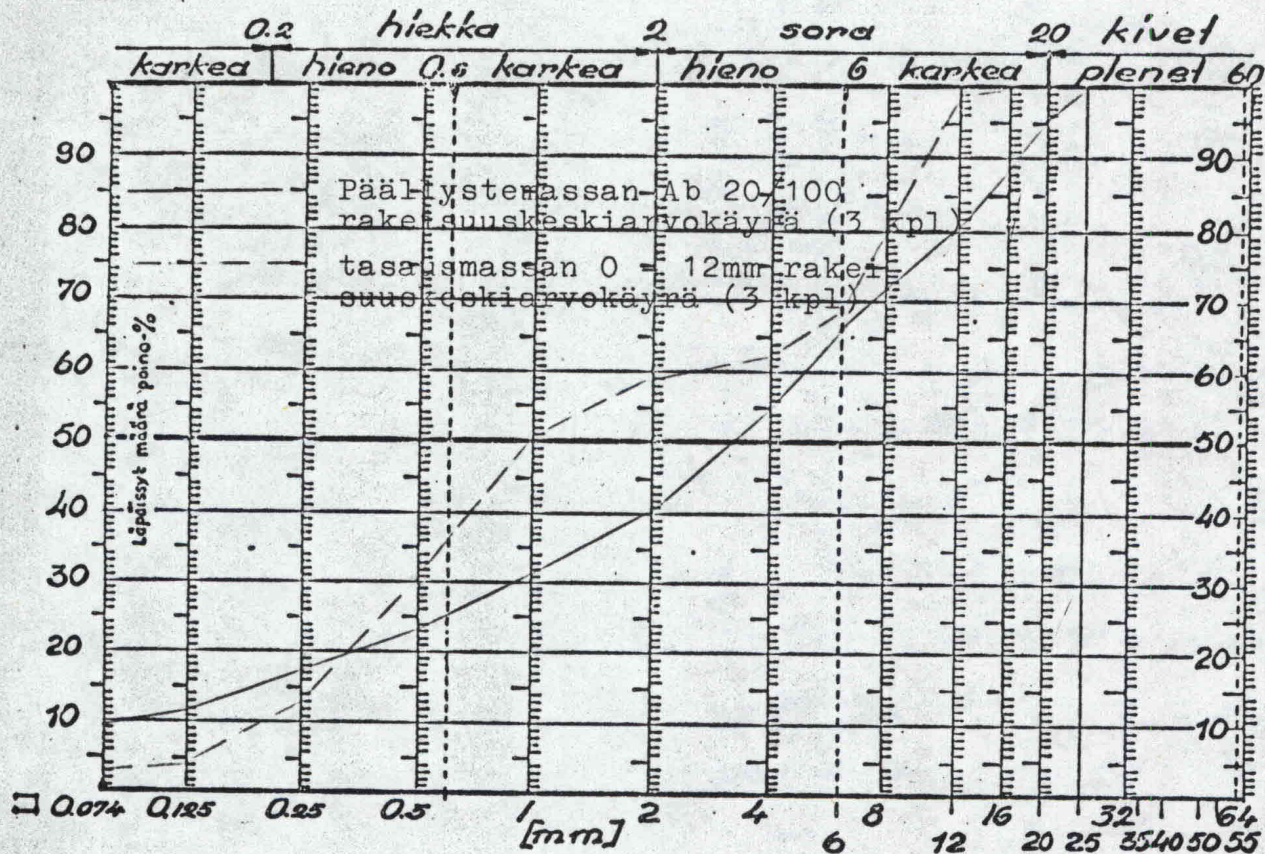 0.2 hiekka 2 sora 20 kivet
karkea hieno 0.6 karkea hieno 6 karkea pienet 60
90
80
70
60
50
40
30
20
10
Läpäissyt määrä paino-%
Päällystemassan Ab 20/100
rakeisuuskeskiarvokäyrä (3 kpl)
tasausmassan 0 - 12mm rakei-
suuskeskiarvokäyrä (3 kpl)
90
80
70
60
50
40
30
20
10
11
0.074 0.125 0.25 0.5 1 2 4 8 16 32 64
[mm] 6 12 20 25 35 40 50 55